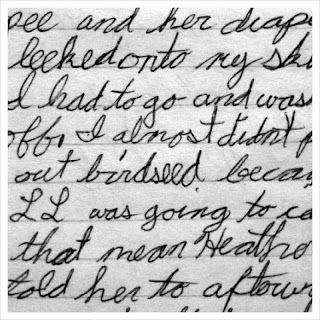 pee and her diape
leeked onto my ski
I had to go and was
off. I almost didn't p
out birdseed becau
LL was going to co
that mean Heathe
told her to aftow